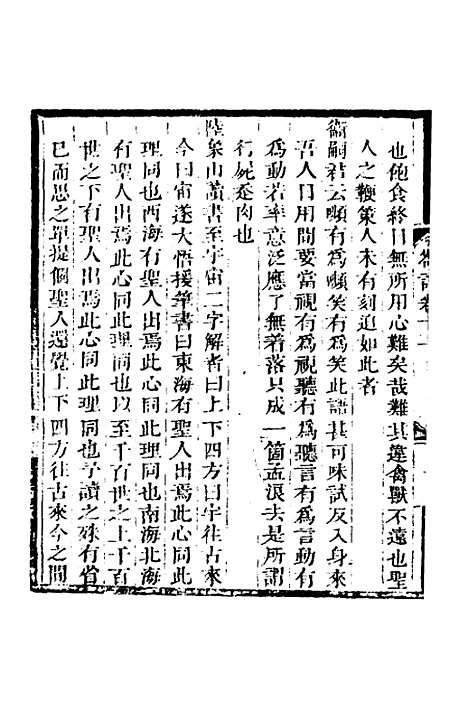 也飽食終日無所用心難矣哉難其違禽獸不遠也聖
人之鞭策人未有刻迫如此者
衛嗣君云嚬有為嚬笑有為笑此語甚可味試反入身來
吾人日用間要當視有為視聽有為聽言有為言動有
為動若率意泛應了無著落只成一箇孟浪去是所謂
行屍走肉也
陸象山讀書至宇宙二字解者曰上下四方曰宇往古來
今曰宙遂大悟援筆書曰東海有聖人出焉此心同此
理同也西海有聖人出焉此心同此理同也南海北海
有聖人出焉此心同此理同也以至千百世之上千百
世之下有聖人出焉此心同此理同也予讀之殊有省
已而思之單提個聖人還覺上下四方往古來今之間